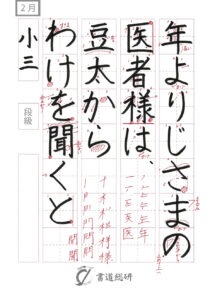 2月
年よりじさまの
医者様は、
豆太から
わけを聞くと
小三
段級
書道総研